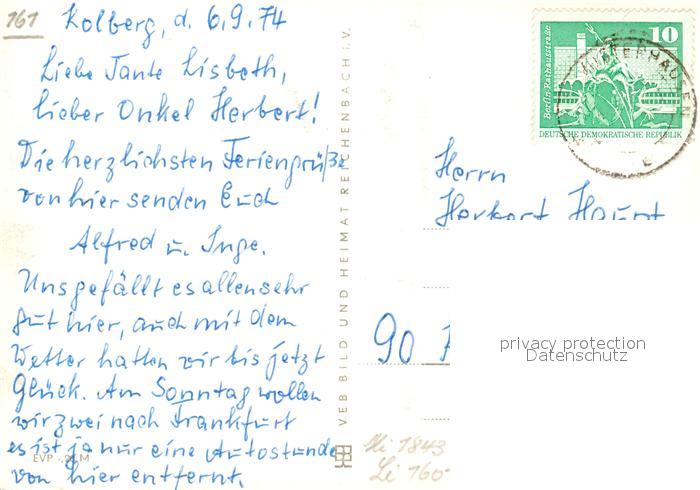 161
Kolberg, d. 6.9.74
Liebe Tante Lisbeth,
lieber Onkel Herbert!
Die herzlichsten Feriengrüße
von hier senden Euch
Alfred u. Inge.
Uns gefällt es allen sehr
gut hier, auch mit dem
Wetter hatten wir bis jetzt
Glück. Am Sonntag wollen
wir zwei nach Frankfurt
es ist ja nur eine Autostunde
von hier entfernt.
EVP -,20 M
VEB BILD UND HEIMAT REICHENBACH i. V.
Berlin, Rathausstraße
10
DEUTSCHE DEMOKRATISCHE REPUBLIK
Herrn
Herbert
90
privacy protection
Datenschutz
Mi 1843
Li 160